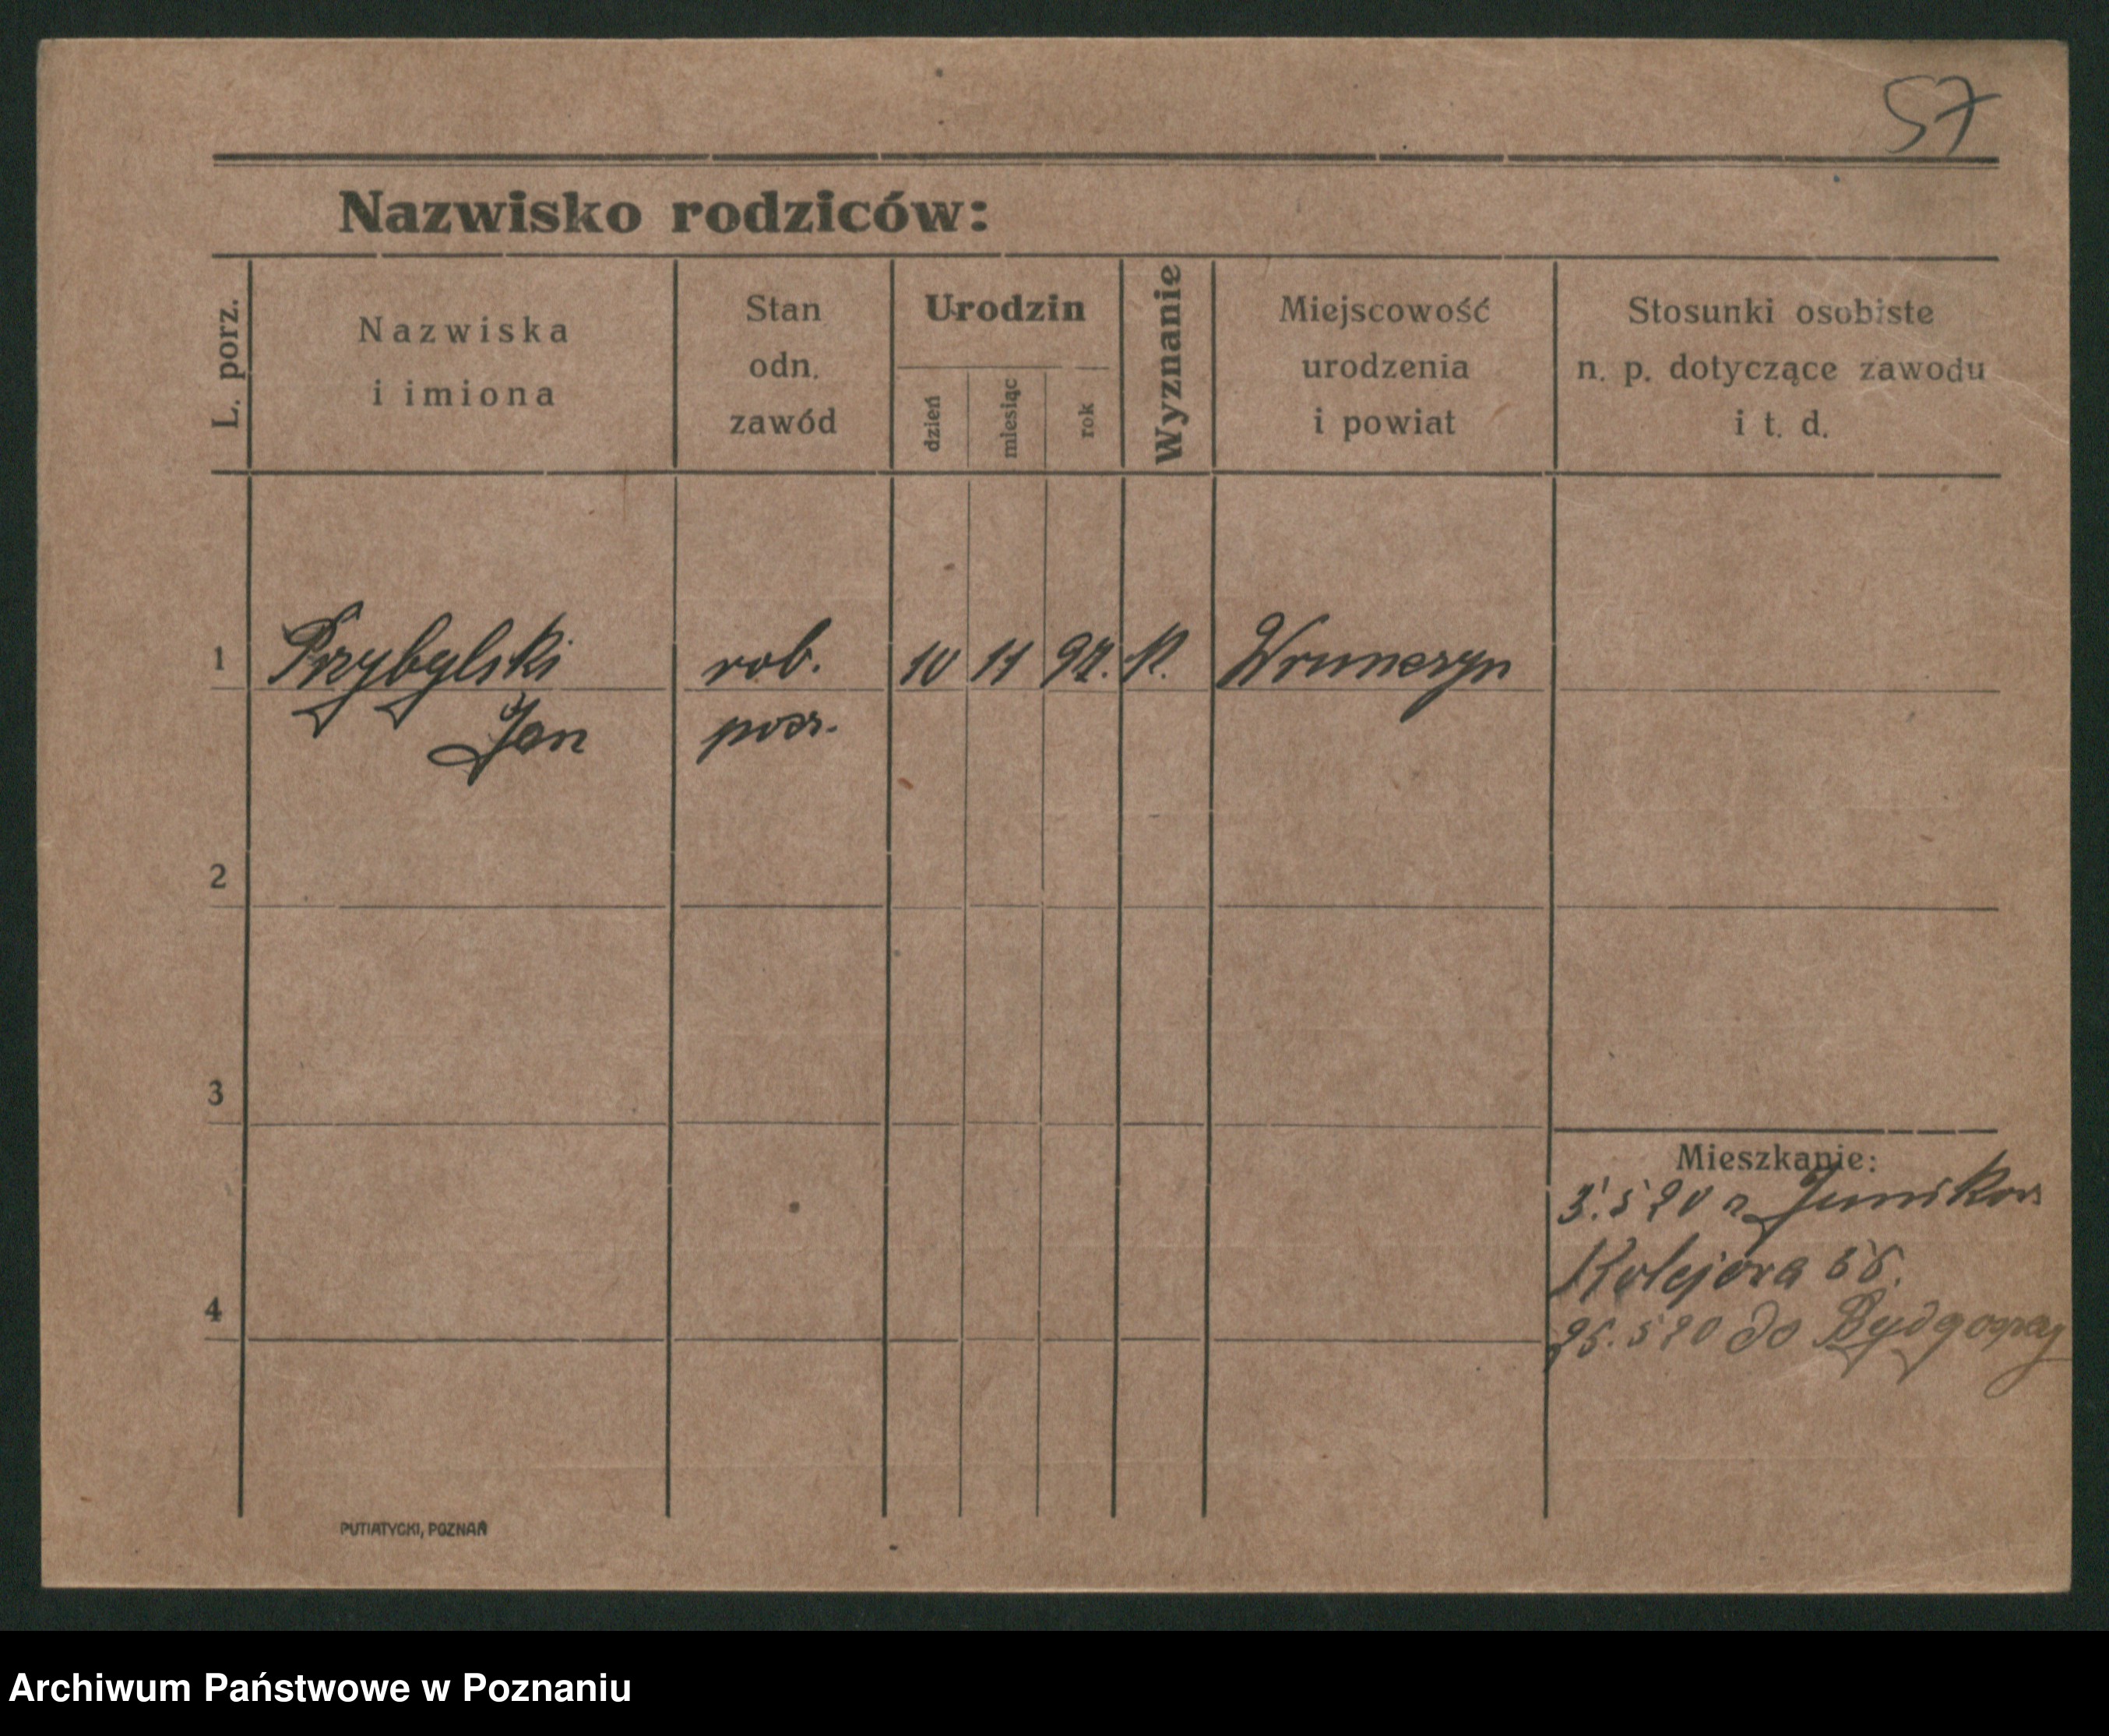 57
Nazwisko rodziców:
L. porz.
Nazwiska
i imiona
Stan
odn.
zawód
Urodzin
dzień
miesiąc
rok
Wyznanie
Miejscowość
urodzenia
i powiat
Stosunki osobiste
n. p. dotyczące zawodu
i t. d.
1 Przybylski rob. 10 11 97. K. Wronczyn
Jan
2
3
Mieszkanie:
z Junikowa
do Bydgoszczy
4
PUTIATYCKI, POZNAŃ
Archiwum Państwowe w Poznaniu